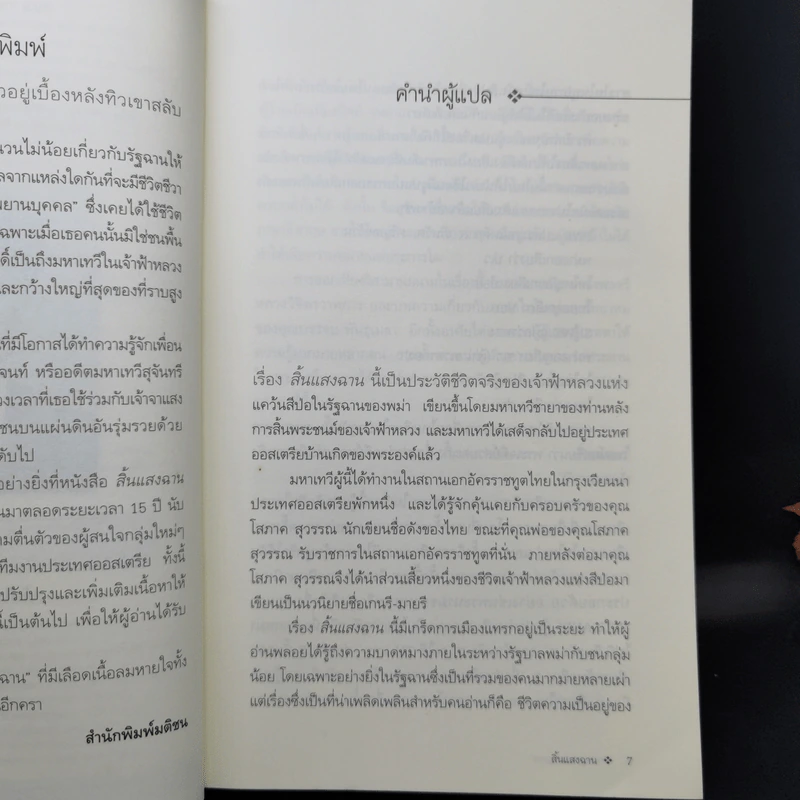 พิมพ์
อยู่เบื้องหลังทิวเขาสลับ
นวนไม่น้อยเกี่ยวกับรัฐฉานให้
ลจากแหล่งใดกันที่จะมีชีวิตชีวา
พยานบุคคล" ซึ่งเคยได้ใช้ชีวิต
ฉพาะเมื่อเธอคนนั้นมิใช่ชนพื้น
ดิ์เป็นถึงมหาเทวีในเจ้าฟ้าหลวง
ละกว้างใหญ่ที่สุดของที่ราบสูง
ที่มีโอกาสได้ทำความรู้จักเพื่อน
จนท์ หรืออดีตมหาเทวีสุจันทรี
วงเวลาที่เธอใช้ร่วมกับเจ้าจาแสง
ชนบนแผ่นดินอันรุ่มรวยด้วย
ดับไป
อย่างยิ่งที่หนังสือ สิ้นแสงฉาน
นมาตลอดระยะเวลา 15 ปี นับ
ามตื่นตัวของผู้สนใจกลุ่มใหม่ๆ
ทีมงานประเทศออสเตรีย ทั้งนี้
ปรับปรุงและเพิ่มเติมเนื้อหาให้
นี้เป็นต้นไป เพื่อให้ผู้อ่านได้รับ
ฉาน" ที่มีเลือดเนื้อลมหายใจทั้ง
อีกครา
สำนักพิมพ์มติชน
คำนำผู้แปล
เรื่อง สิ้นแสงฉาน นี้เป็นประวัติชีวิตจริงของเจ้าฟ้าหลวงแห่ง
แคว้นสีป่อในรัฐฉานของพม่า เขียนขึ้นโดยมหาเทวีชายาของท่านหลัง
การสิ้นพระชนม์ของเจ้าฟ้าหลวง และมหาเทวีได้เสด็จกลับไปอยู่ประเทศ
ออสเตรียบ้านเกิดของพระองค์แล้ว
มหาเทวีผู้นี้ได้ทำงานในสถานเอกอัครราชทูตไทยในกรุงเวียนนา
ประเทศออสเตรียพักหนึ่ง และได้รู้จักคุ้นเคยกับครอบครัวของคุณ
โสภาค สุวรรณ นักเขียนชื่อดังของไทย ขณะที่คุณพ่อของคุณโสภาค
สุวรรณ รับราชการในสถานเอกอัครราชทูตที่นั่น ภายหลังต่อมาคุณ
โสภาค สุวรรณจึงได้นำส่วนเสี้ยวหนึ่งของชีวิตเจ้าฟ้าหลวงแห่งสีป่อมา
เขียนเป็นนวนิยายชื่อเกนรี-มายรี
เรื่อง สิ้นแสงฉาน นี้มีเกร็ดการเมืองแทรกอยู่เป็นระยะ ทำให้ผู้
อ่านพลอยได้รู้ถึงความบาดหมางภายในระหว่างรัฐบาลพม่ากับชนกลุ่ม
น้อย โดยเฉพาะอย่างยิ่งในรัฐฉานซึ่งเป็นที่รวมของคนมากมายหลายเผ่า
แต่เรื่องซึ่งเป็นที่น่าเพลิดเพลินสำหรับคนอ่านก็คือ ชีวิตความเป็นอยู่ของ
สิ้นแสงฉาน ❖ 7